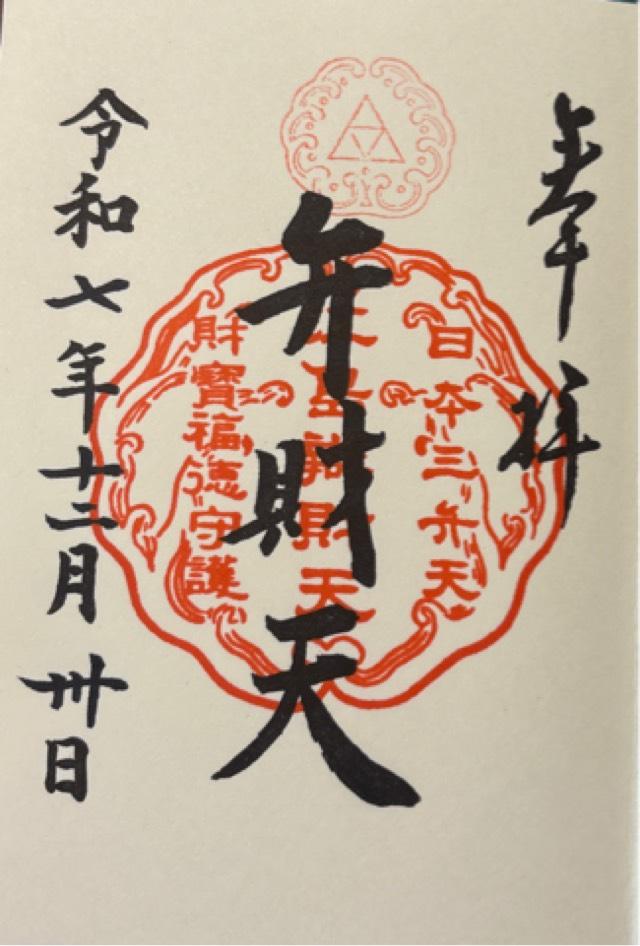 奉拝
日本三弁天
辨財天
財寶福徳守護
弁財天
令和七年十二月卅日